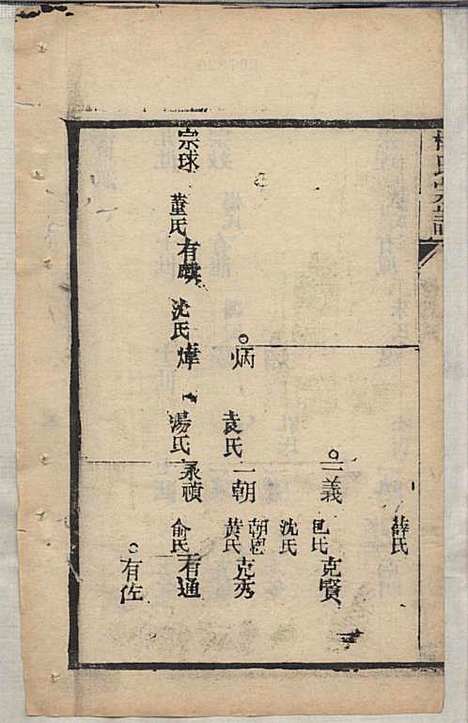 氏宗譜
薛氏
一義
包氏
克賢
沈氏
炳
袁氏
一朝
朝恩
黃氏
克秀
宗球
董氏
有麒
沈氏
煒
湯氏
永禎
俞氏
有通
有佐